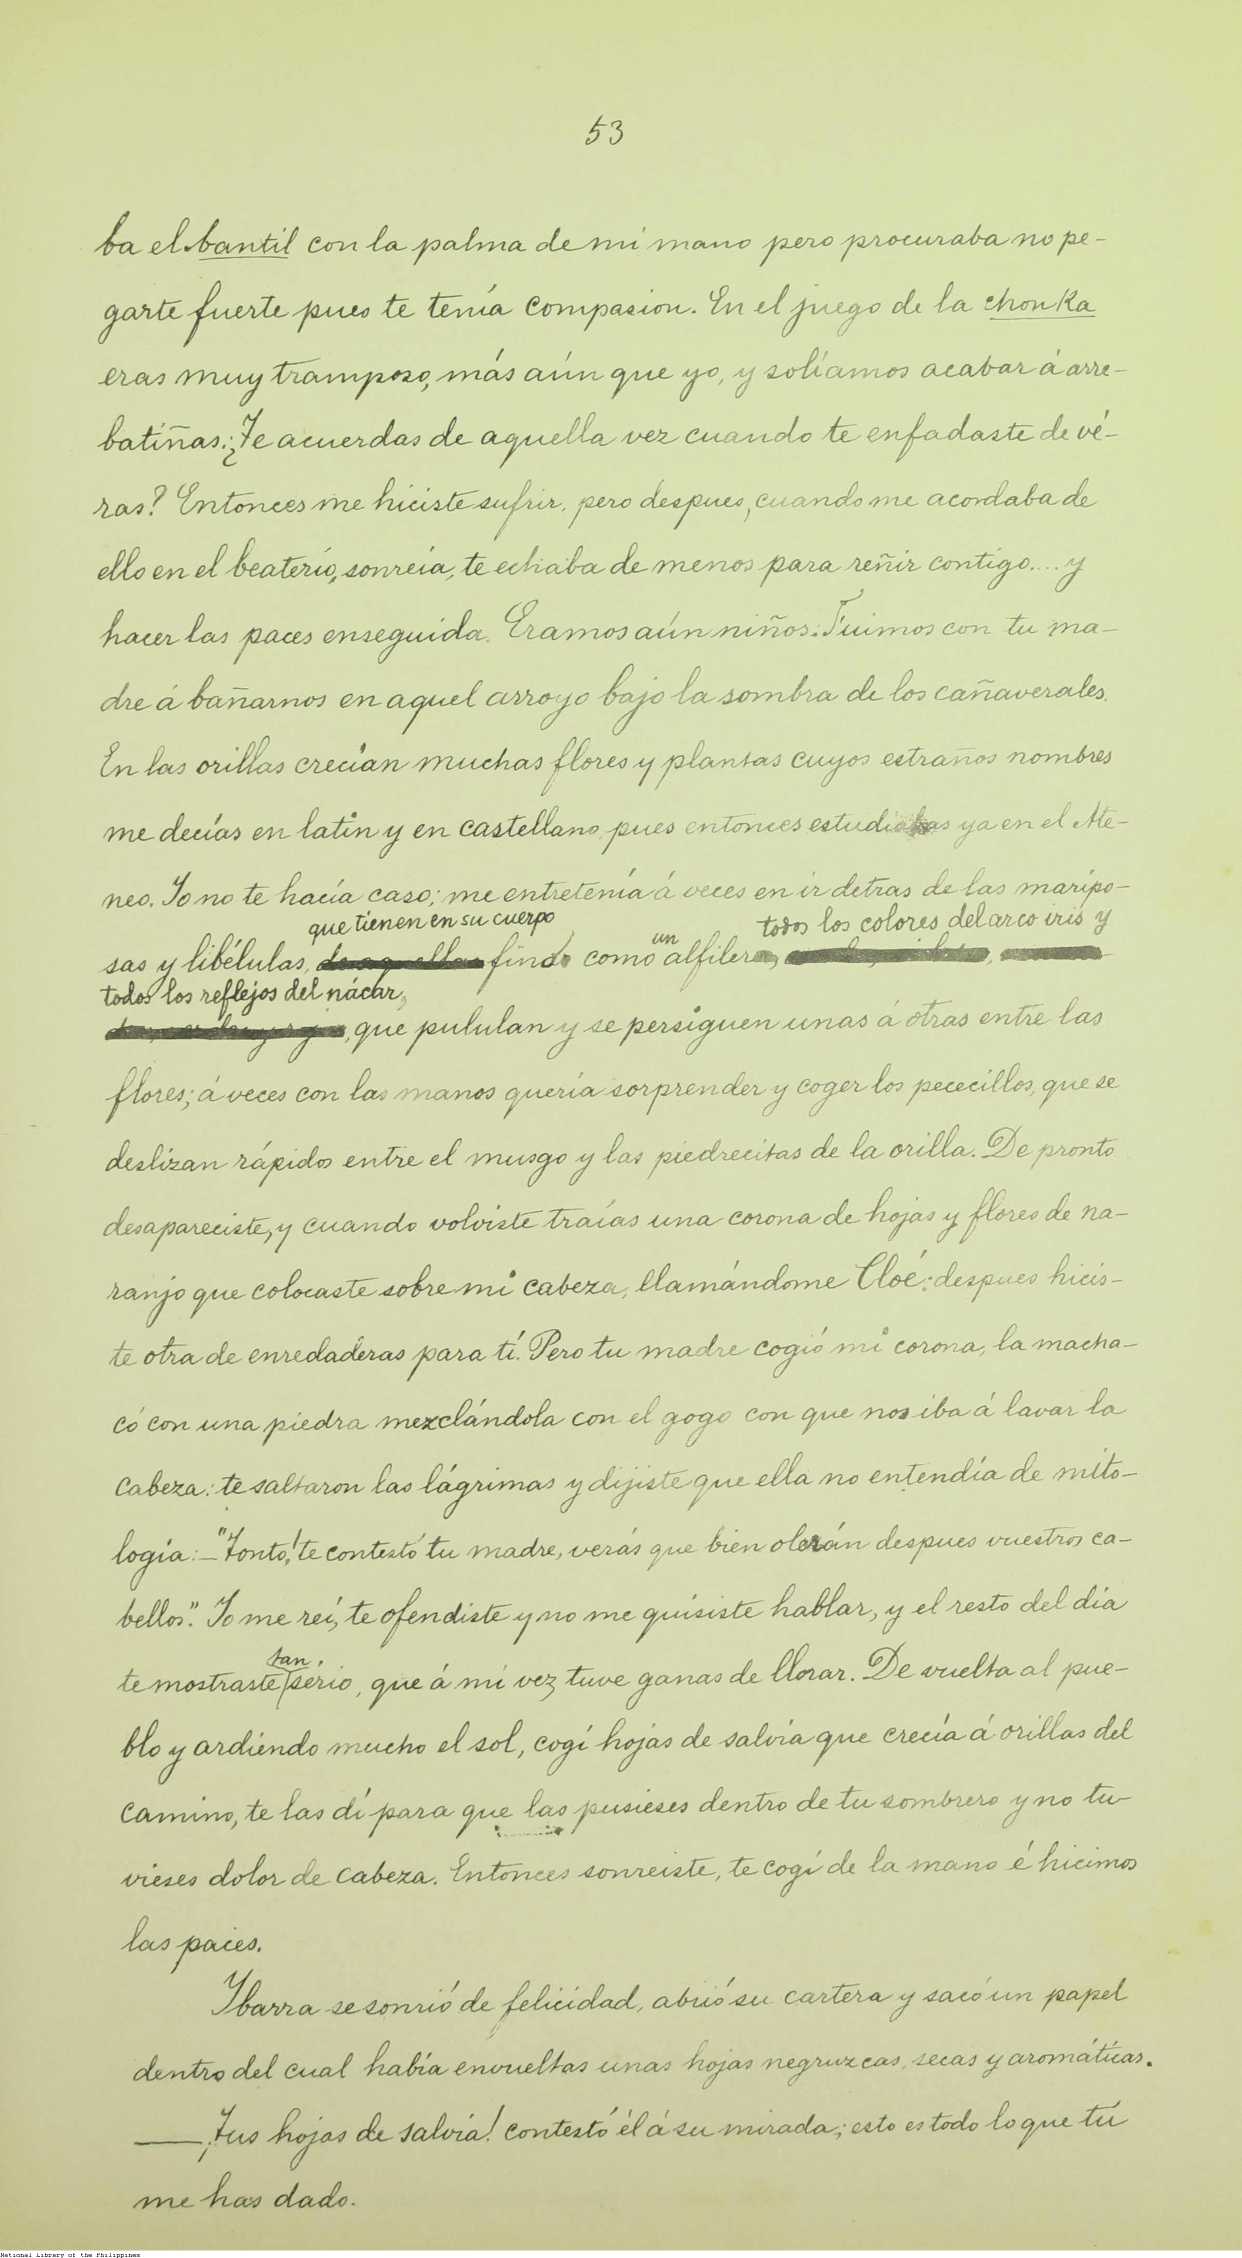 53
ba el bantil con la palma de mi mano pero procuraba no pe-
garte fuerte pues te tenía compasion. En el juego de la chonka
eras muy tramposo, más aún que yo, y solíamos acabar á arre-
batiñas. ¿Te acuerdas de aquella vez cuando te enfadaste de vé-
ras? Entonces me hiciste sufrir, pero despues, cuando me acordaba de
ello en el beaterio, sonreía, te echaba de menos para reñir contigo.... y
hacer las paces enseguida. Eramos aún niños. Fuimos con tu ma-
dre á bañarnos en aquel arroyo bajo la sombra de los cañaverales.
En las orillas crecían muchas flores y plantas cuyos estraños nombres
me decías en latin y en castellano, pues entonces estudiabas ya en el Ate-
neo. Yo no te hacía caso; me entretenía á veces en ir detras de las maripo-
que tienen en su cuerpo un todos los colores del arco iris y
sas y libélulas, fino como alfiler,
todos los reflejos del nácar,
que pululan y se persiguen unas á otras entre las
flores; á veces con las manos quería sorprender y coger los pececillos, que se
deslizan rápidos entre el musgo y las piedrecitas de la orilla. De pronto
desapareciste, y cuando volviste traías una corona de hojas y flores de na-
ranjo que colocaste sobre mi cabeza, llamándome Cloé: despues hicis-
te otra de enredaderas para tí. Pero tu madre cogió mi corona, la macha-
có con una piedra mezclándola con el gogo con que nos iba á lavar la
cabeza: te saltaron las lágrimas y dijiste que ella no entendía de mito-
logía: — "Tonto! te contestó tu madre, verás que bien olerán despues vuestros ca-
bellos". Yo me reí, te ofendiste y no me quisiste hablar, y el resto del día
tan
te mostraste serio, que á mi vez tuve ganas de llorar. De vuelta al pue-
blo y ardiendo mucho el sol, cogí hojas de salvia que crecía á orillas del
camino, te las dí para que las pusieses dentro de tu sombrero y no tu-
vieses dolor de cabeza. Entonces sonreiste, te cogí de la mano é hicimos
las paces.
Ybarra se sonrió de felicidad, abrió su cartera y sacó un papel
dentro del cual había envueltas unas hojas negruzcas, secas y aromáticas.
— ¡Tus hojas de salvia! contestó él á su mirada; esto es todo lo que tú
me has dado.
National Library of the Philippines